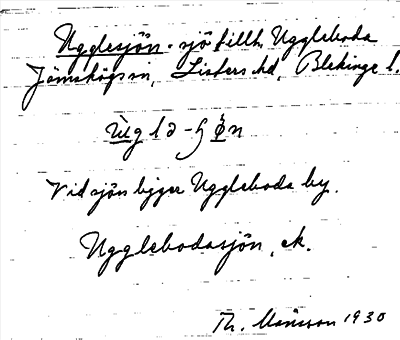 Ugglesjön - sjö tillh. Uggleboda
Jämshögs sn, Listers hd, Blekinge l.
ùg lə - ɧ ön
Vid sjön ligger Uggleboda by.
Ugglebodasjön, ek.
Th. Månsson 1930